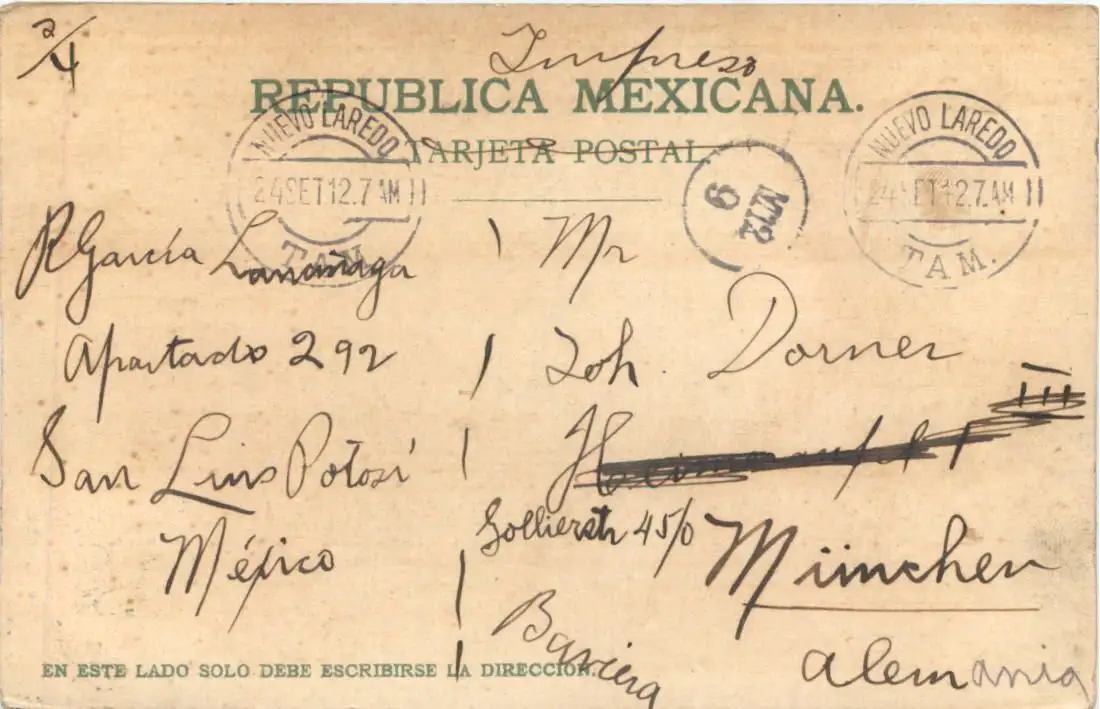 2/4
Impreso
REPUBLICA MEXICANA.
TARJETA POSTAL.
NUEVO LAREDO
24 SET 12. 7 AM
TAM.
9
NUEVO LAREDO
24 SET 12. 7 AM
TAM.
R García
Apartado 292
San Luis Potosí
México
Mr
Joh. Dorner
III
Gollierstr 45/0
München
Baviera
Alemania
EN ESTE LADO SOLO DEBE ESCRIBIRSE LA DIRECCION.